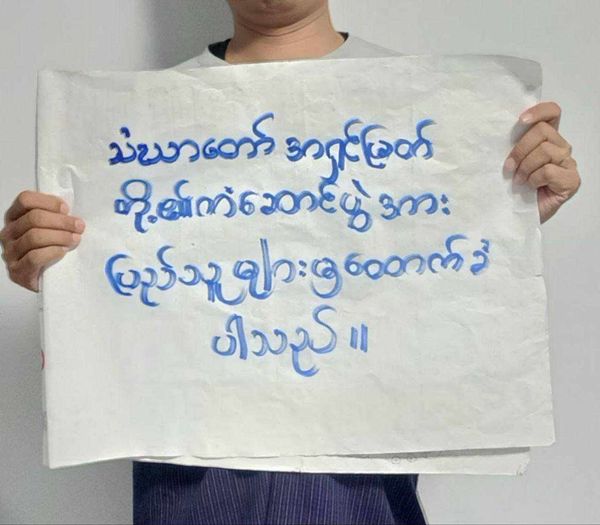 သံဃာတော် အရှင်မြတ်
တို့၏ကံဆောင်ပွဲ အား
ပြည်သူများမှထောက်ခံ
ပါသည် ။